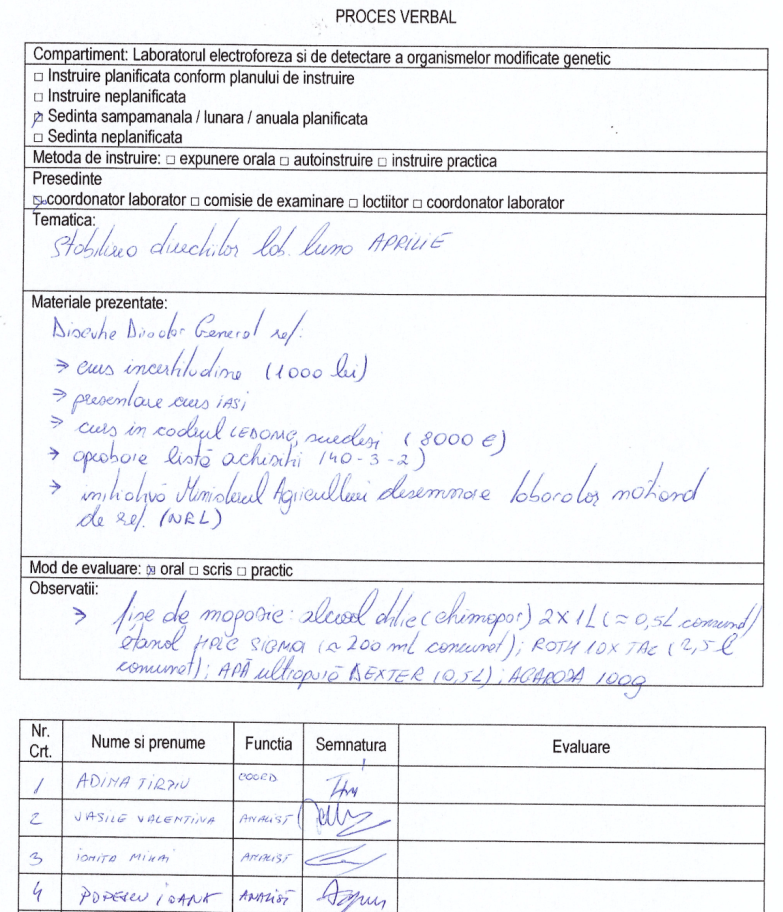 PROCES VERBAL
Compartiment: Laboratorul electroforeza si de detectare a organismelor modificate genetic
□ Instruire planificata conform planului de instruire
□ Instruire neplanificata
☑ Sedinta sampamanala / lunara / anuala planificata
□ Sedinta neplanificata
Metoda de instruire: □ expunere orala □ autoinstruire □ instruire practica
Presedinte
☑ coordonator laborator □ comisie de examinare □ loctiitor □ coordonator laborator
Tematica:
Stabilirea direcțiilor lab. luna APRILIE
Materiale prezentate:
Discuție Director General ref.
→ curs incertitudine (1000 lei)
→ prezentare curs IASI
→ curs in cadrul LEDOMG, suedezi (8000 €)
→ aprobare listă achiziții (40-3-2)
→ inițiativă Ministerul Agriculturii desemnare laborator național
de ref. (NRL)
Mod de evaluare: ☒ oral □ scris □ practic
Observatii:
→ fișe de magazie: alcool etilic (chimopar) 2x1L (≈ 0,5L consumat)
etanol HPLC SIGMA (≈ 200 mL consumat); ROTH 10x TAE (2,5 l
consumat); APĂ ultrapură DEXTER (0,5L); AGAROZA 100g
Nr. Crt. Nume si prenume Functia Semnatura Evaluare
1 ADINA TIRZIU COORD
2 VASILE VALENTINA ANALIST
3 IONITA MIHAI ANALIST
4 POPESCU IOANA ANALIST